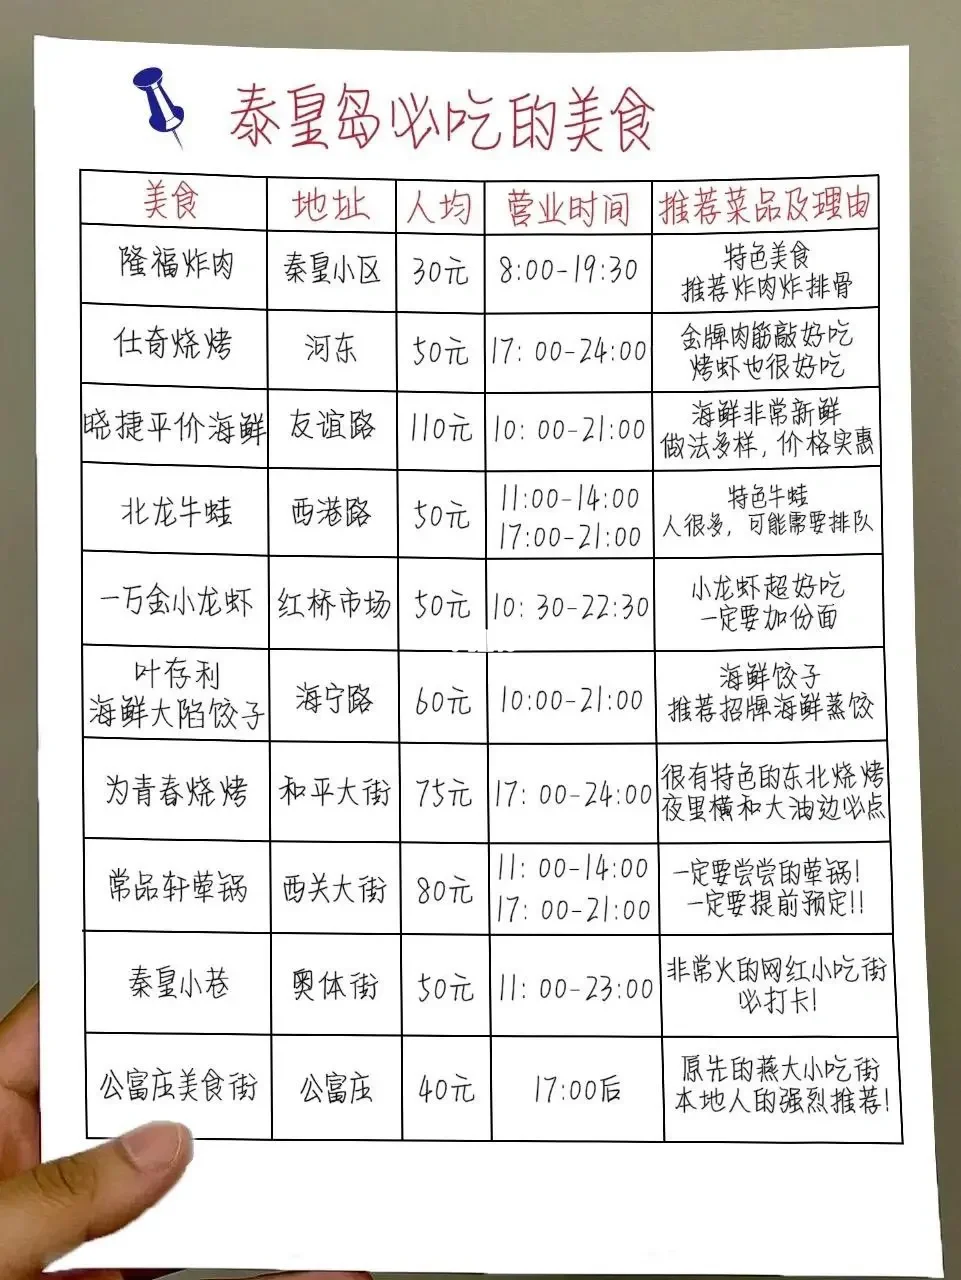 泰皇岛必吃的美食
美食 地址 人均 营业时间 推荐菜品及理由
隆福炸肉 秦皇小区 30元 8:00-19:30 特色美食
推荐炸肉炸排骨
仕奇烧烤 河东 50元 17:00-24:00 金牌肉筋敲好吃
烤虾也很好吃
晓捷平价海鲜 友谊路 110元 10:00-21:00 海鲜非常新鲜
做法多样，价格实惠
北龙牛蛙 西港路 50元 11:00-14:00
17:00-21:00
特色牛蛙
人很多，可能需要排队
一万金小龙虾 红桥市场 50元 10:30-22:30 小龙虾超好吃
一定要加份面
叶存利
海鲜大陷饺子
海宁路 60元 10:00-21:00 海鲜饺子
推荐招牌海鲜蒸饺
为青春烧烤 和平大街 75元 17:00-24:00 很有特色的东北烧烤
夜里横和大油边必点
常品轩荤锅 西关大街 80元 11:00-14:00
17:00-21:00
一定要尝尝的荤锅！
一定要提前预定！！
秦皇小巷 奥体街 50元 11:00-23:00 非常火的网红小吃街
必打卡！
公富庄美食街 公富庄 40元 17:00后 原先的燕大小吃街
本地人的强烈推荐！